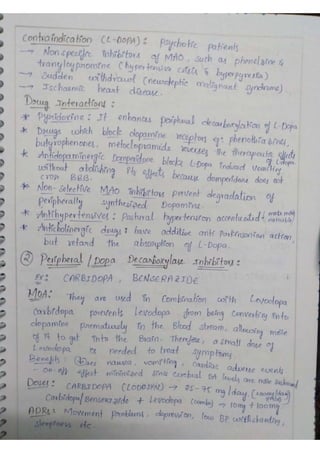 Contraindication (L-DOPA) : psychotic patients
→ Nonspecific Inhibitors of MAO, such as phenelzine &
tranylcypromine (hypertensive crisis & hyperpyrexia)
→ Sudden withdrawal (neuroleptic malignant syndrome)
→ Ischaemic heart disease.
Drug Interactions :
* Pyridoxine : It enhances peripheral decarboxylation of L-Dopa
* Drugs which block dopamine receptors eg: phenothiazines,
butyrophenones, metoclopramide reverses the therapeutic effects of L-dopa
* Antidopaminergic Domperidone blocks L-Dopa induced vomiting
without abolishing its effects because domperidone does not
cross BBB.
* Non-Selective MAO Inhibitors prevent degradation of
peripherally synthesized Dopamine.
* Antihypertensives : Postural hypertension accentuated (more noticeable)
* Anticholinergic drugs : have additive anti Parkinsonian action
but retard the absorption of L-Dopa.
② Peripheral / Dopa Decarboxylase Inhibitors :
Ex: CARBIDOPA, BENSERAZIDE
MOA: They are used in Combination with Levodopa
Carbidopa prevents Levodopa from being converting into
dopamine prematurely in the Blood stream, allowing more
of it to get into the Brain. Therefore, a small dose of
Levodopa is needed to treat symptoms.
Benefits : nausea, vomiting, cardiac adverse events
- On off effect minimised sins cerebral DA levels are more
Doses: CARBIDOPA (LODOSYN) → 25-75 mg/day
Carbidopa/Benserazide + Levodopa (comb) → 10mg + 100mg
ADRs : Movement problems, depression, low BP withstanding,
sleepiness etc.